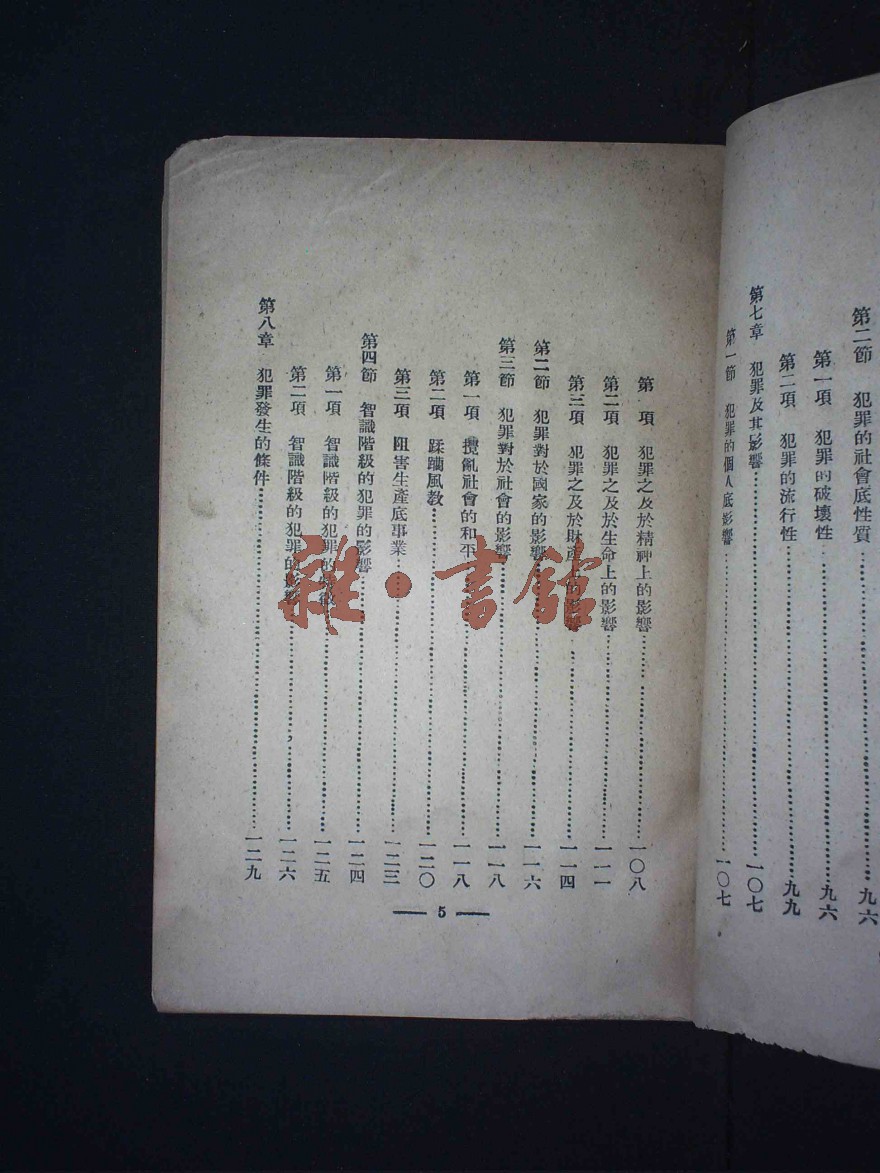 第二節 犯罪的社會底性質……九六
第一項 犯罪的破壞性……九六
第二項 犯罪的流行性……九九
第七章 犯罪及其影響……一〇七
第一節 犯罪的個人底影響……一〇七
第一項 犯罪之及於精神上的影響……一〇八
第二項 犯罪之及於生命上的影響……一一一
第三項 犯罪之及於財產上的影響……一一四
第二節 犯罪對於國家的影響……一一六
第三節 犯罪對於社會的影響……一一八
第一項 攪亂社會的和平……一一八
第二項 蹂躪風教……一二〇
第三項 阻害生產底事業……一二三
第四節 智識階級的犯罪的影響……一二四
第一項 智識階級的犯罪的……一二五
第二項 智識階級的犯罪的影響……一二六
第八章 犯罪發生的條件……一二九
— 5 —
雜·書館